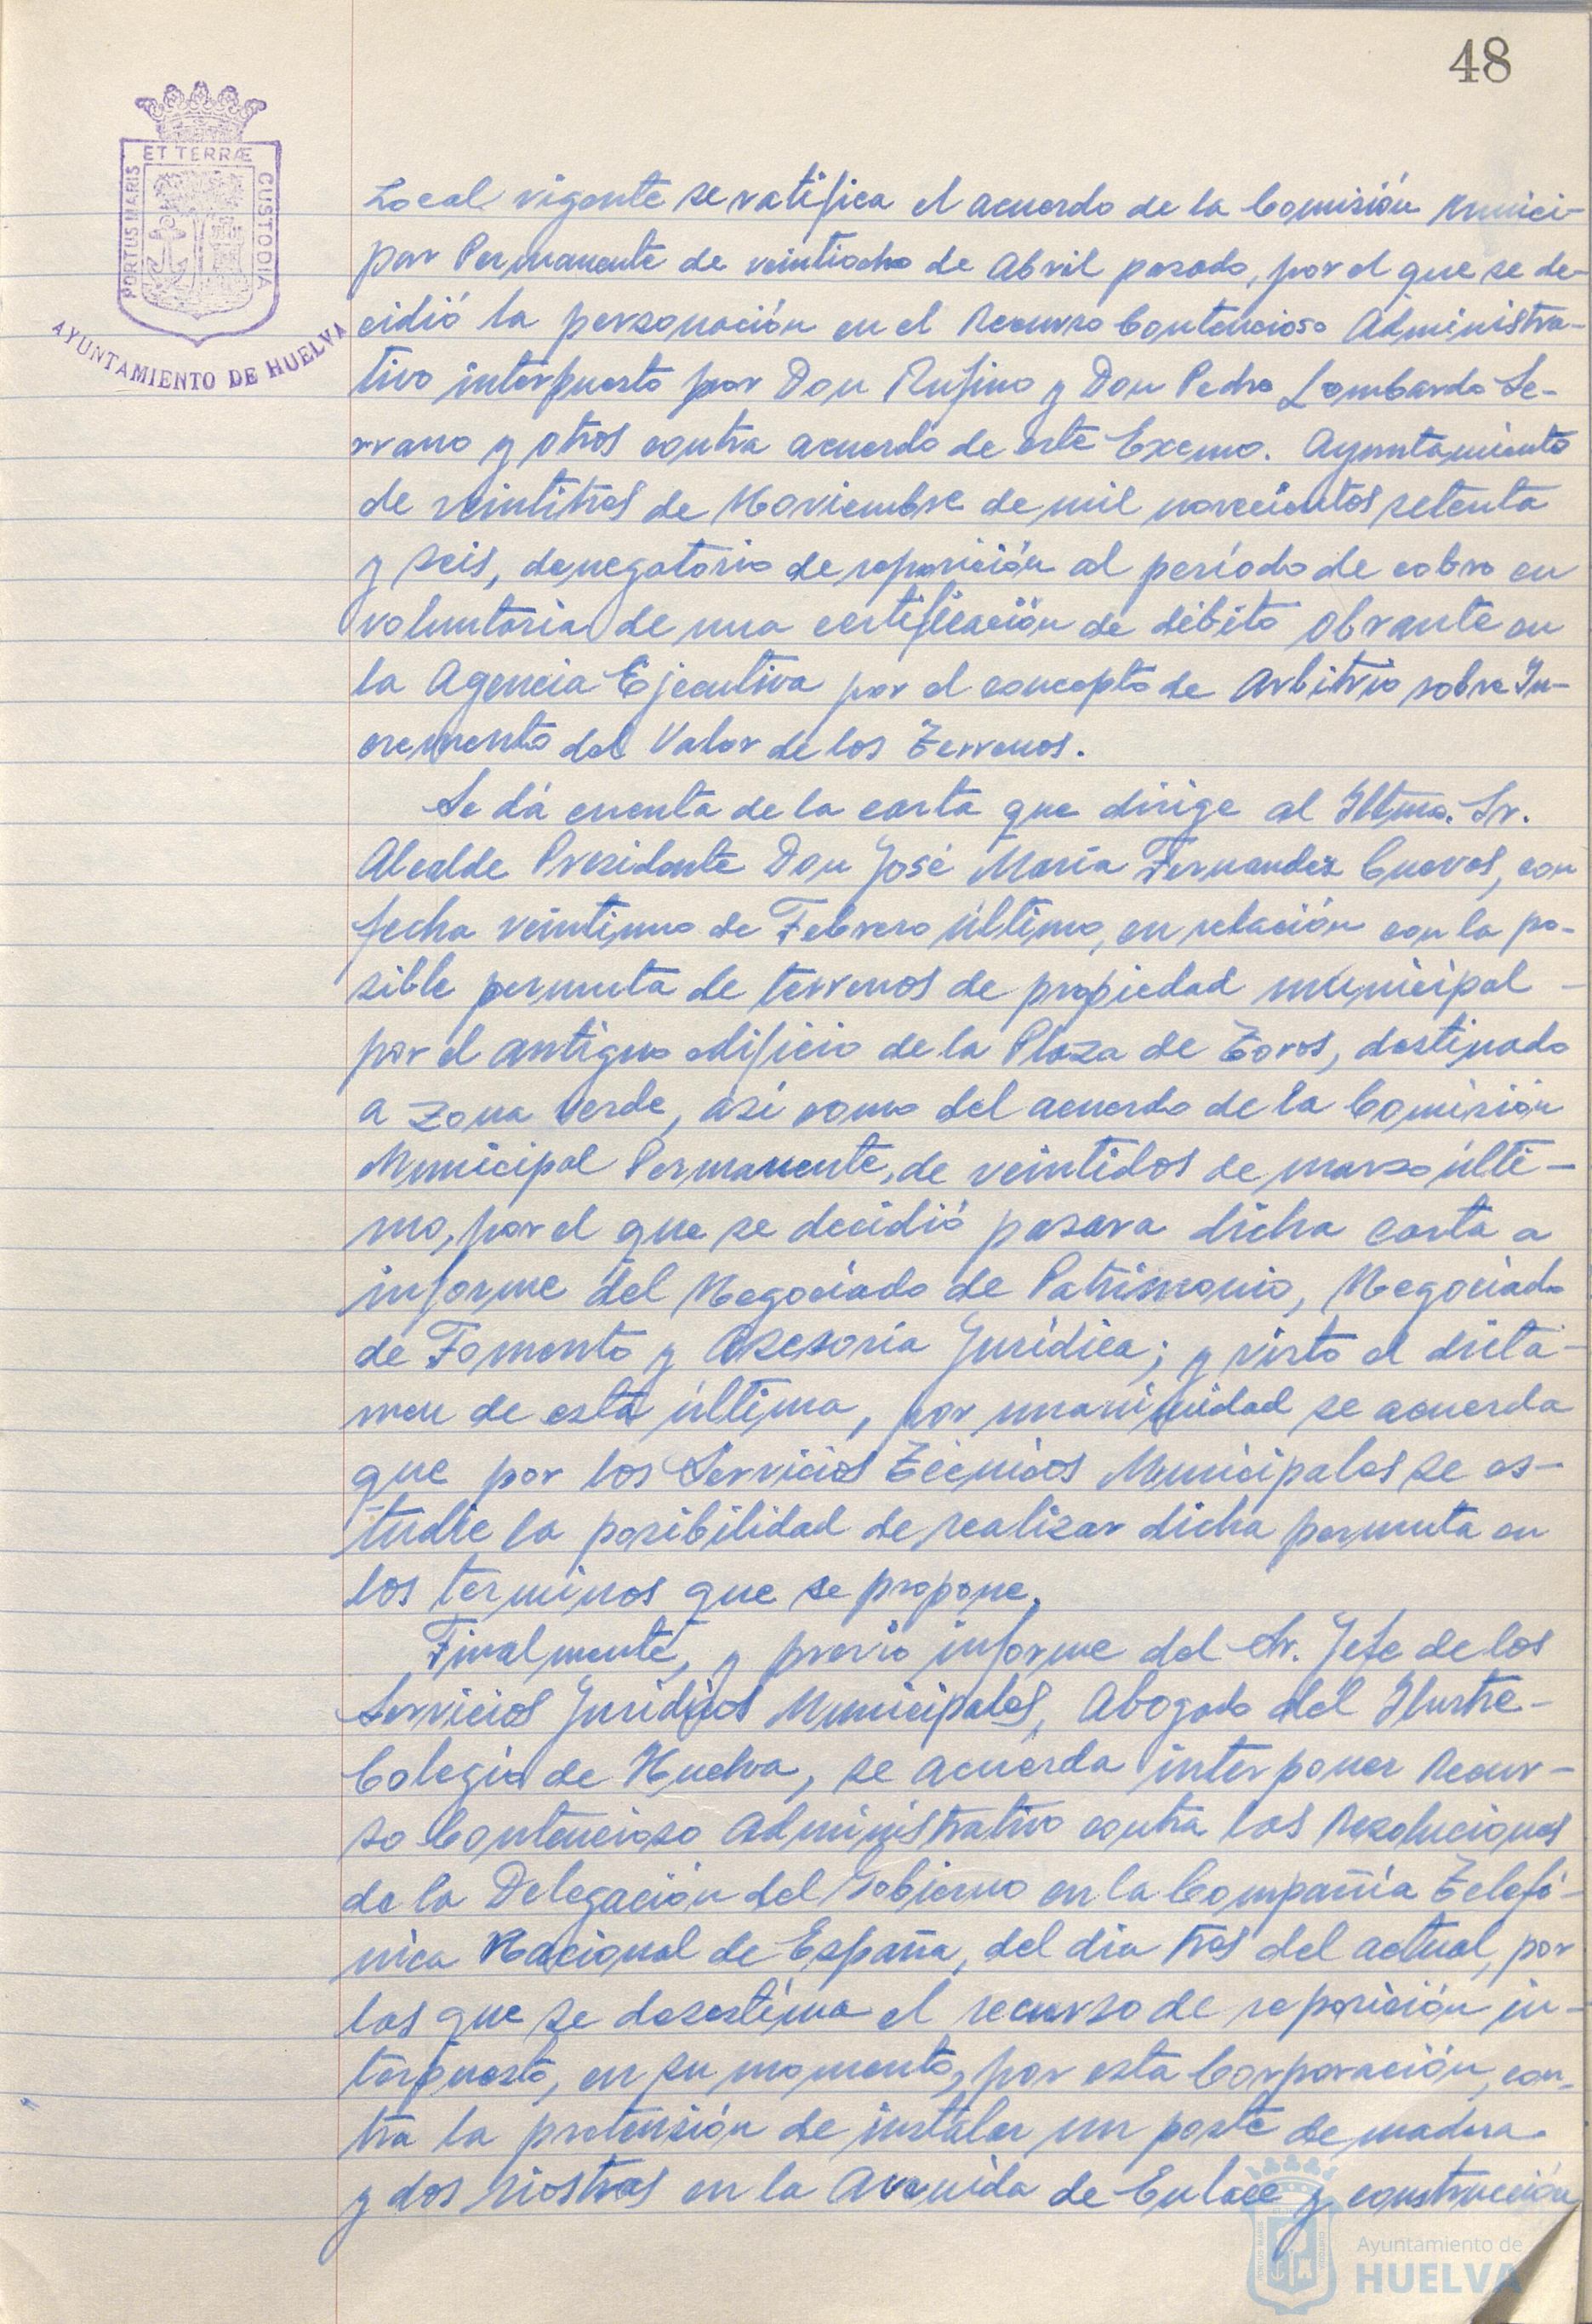 48
ET TERRÆ
PORTUS MARIS
CUSTODIA
AYUNTAMIENTO DE HUELVA
Local vigente se ratifica el acuerdo de la Comisión Munici-
par Permanente de veintiocho de Abril pasado, por el que se de-
cidió la personación en el Recurso Contencioso Administra-
tivo interpuesto por Don Rufino y Don Pedro Lombardo Se-
rrano y otros contra acuerdo de este Excmo. Ayuntamiento
de veintitres de Noviembre de mil novecientos setenta
y seis, denegatorio de reposición al período de cobro en
voluntaria de una certificación de débito obrante en
la Agencia Ejecutiva por el concepto de Arbitrio sobre In-
cremento del Valor de los Terrenos.
Se dá cuenta de la carta que dirige al Iltmo. Sr.
Alcalde Presidente Don José María Fernandez Cuevas, con
fecha veintiuno de Febrero último, en relación con la po-
sible permuta de terrenos de propiedad municipal -
por el antiguo edificio de la Plaza de Toros, destinado
a Zona Verde, así como del acuerdo de la Comisión
Municipal Permanente, de veintidos de marzo últi-
mo, por el que se decidió pasara dicha carta a
informe del Negociado de Patrimonio, Negociado
de Fomento y Asesoría Jurídica; y visto el dicta-
men de esta última, por unanimidad se acuerda
que por los Servicios Técnicos Municipales se es-
tudie la posibilidad de realizar dicha permuta en
los terminos que se propone.
Finalmente, y previo informe del Sr. Jefe de los
Servicios Jurídicos Municipales, Abogado del Ilustre-
Colegio de Huelva, se acuerda interponer Recur-
so Contencioso Administrativo contra las Resoluciones
de la Delegación del Gobierno en la Compañía Telefó-
nica Nacional de España, del dia tres del actual, por
las que se desestima el recurso de reposición in-
terpuesto, en su momento, por esta Corporación, con-
tra la pretensión de instalar un poste de madera
y dos riostras en la Avenida de Enlace y construcción
Ayuntamiento de
HUELVA